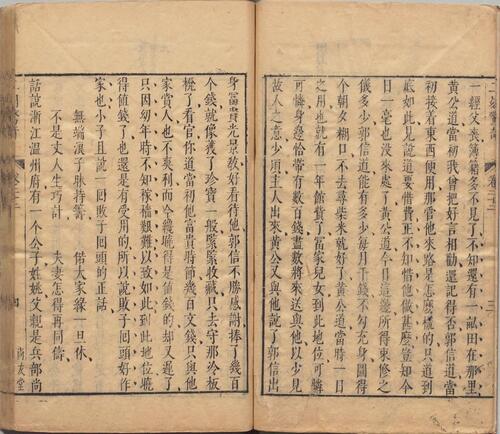 二刻驚奇 卷二十二 三
一經父丧簿籍多不見了不知還有一畆田在那里
黃公道當初我曾把好言相勸還記得否郭信道當
初接着東西便用那管他來路是怎麽樣的只道到
底如此見說道要惜費正不知惜他做甚麽豈知今
日一毫也没來處了黃公道今日這邊所得束修之
儀多少郭信道能有多少每月千錢不勾充身圖得
個朝夕糊口不去尋柴米就好了黃公道當時一日
之用也就有一年館資了富家兒女到此地位可憐
可憐身邊恰帶有數百錢盡數將來送與他以少見
故人之意少頃主人出來黃公又與他說了郭信出
身富貴光景敎好看待他郭信不勝感謝捧了幾百
個錢就像獲了珍寶一般緊緊收藏只去守那冷板
櫈了看官你道當初他富貴時節幾百文錢只與他
家賞人也不爽利而今纔曉得是值錢的却又遲了
只因幼年時不知稼穡艱難以致如此到此地位曉
得値錢了也還是有受用的所以說敗子囘頭好作
家也小子且說一囘敗子囘頭的正話
無端浪子昧持籌 偌大家緣一旦休
不是丈人生巧計 夫妻怎得再同儔
話說浙江溫州府有一個公子姓姚父親是兵部尚
四 尚友堂